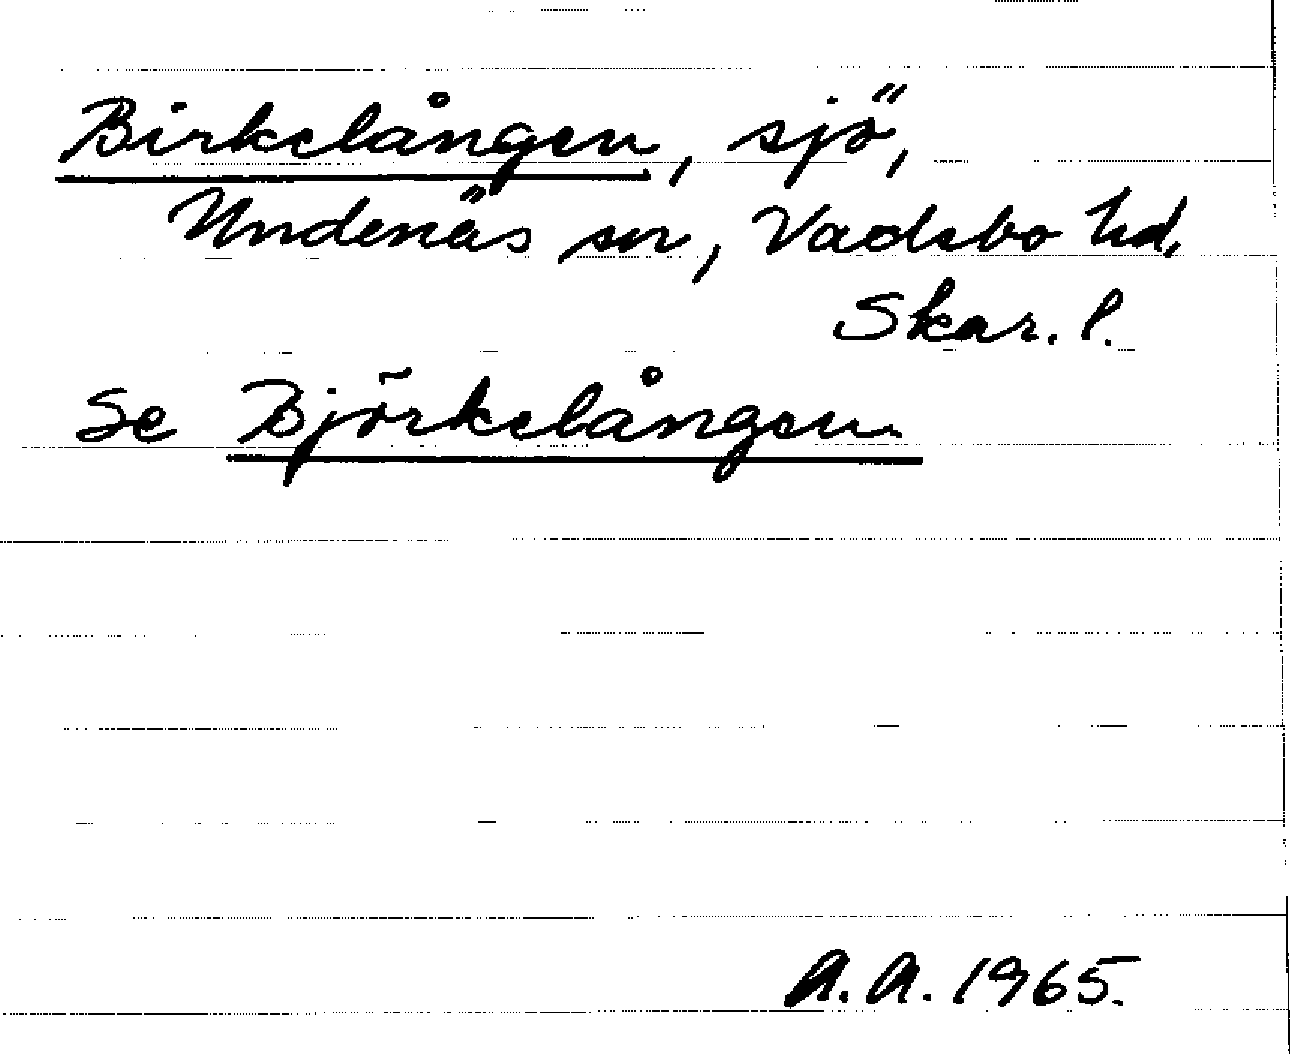 Birkelången, sjö,
Undenäs sn, Vadsbo hd,
Skar. l.
Se Björkelången
A.A. 1965.